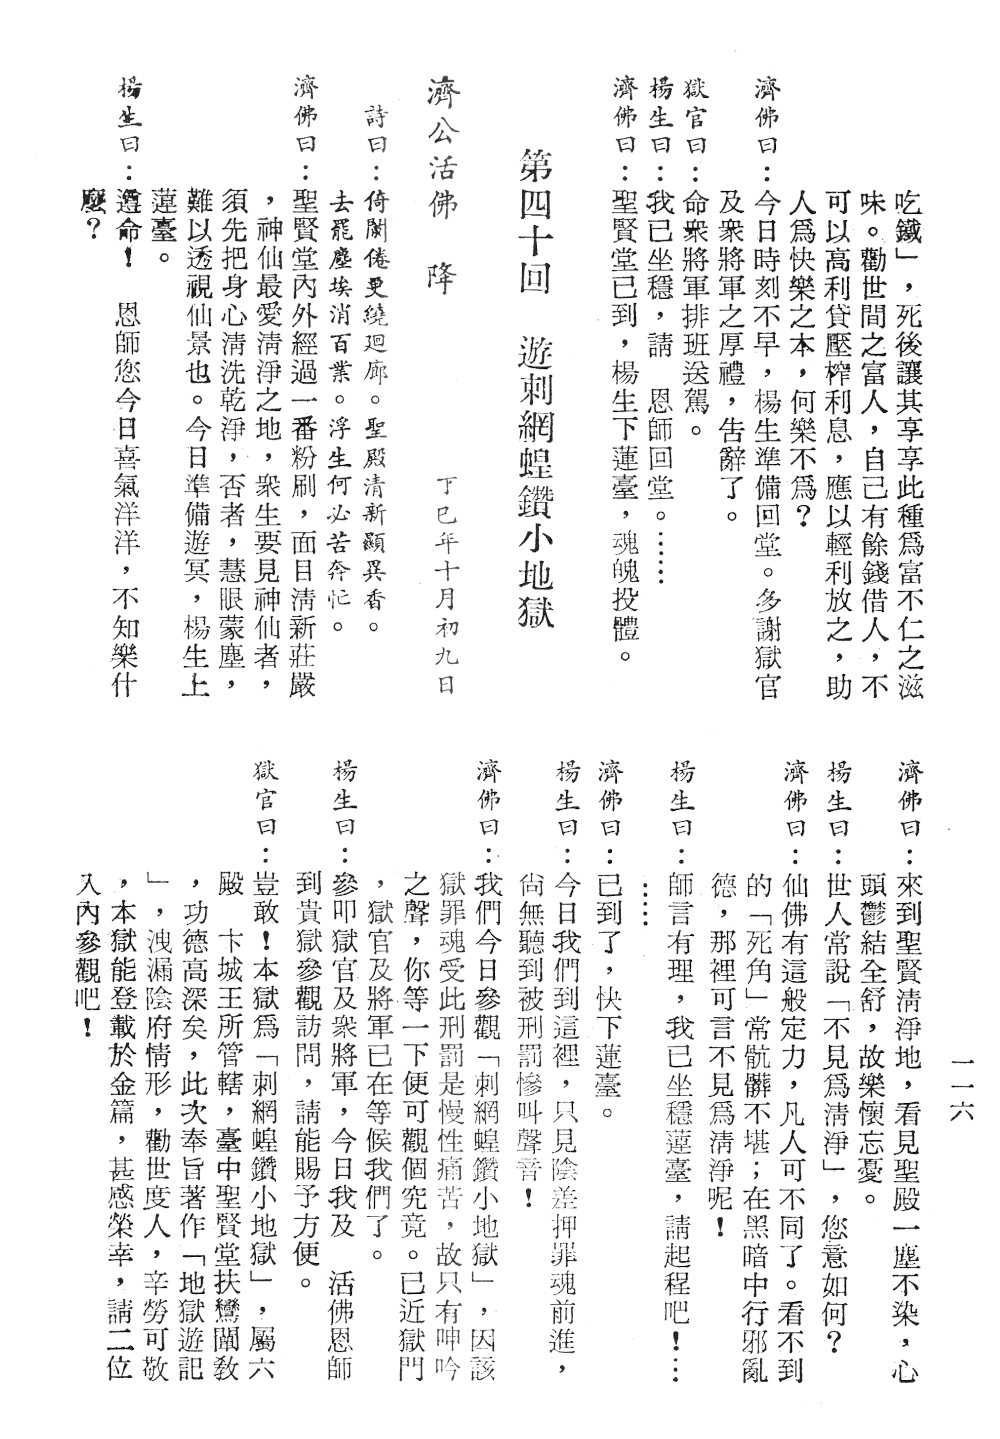 吃鐵」，死後讓其享享此種爲富不仁之滋
味。勸世間之富人，自己有餘錢借人，不
可以高利貸壓榨利息，應以輕利放之，助
人爲快樂之本，何樂不爲？
濟佛曰：今日時刻不早，楊生準備回堂。多謝獄官
及衆將軍之厚禮，告辭了。
獄官曰：命衆將軍排班送駕。
楊生曰：我已坐穩，請　恩師回堂。……
濟佛曰：聖賢堂已到，楊生下蓮臺，魂魄投體。
第四十回　遊刺網蝗鑽小地獄
濟公活佛　降　丁巳年十月初九日
詩曰：倚闌倦更繞廻廊。聖殿清新顯異香。
去罷塵埃消百業。浮生何必苦奔忙。
濟佛曰：聖賢堂內外經過一番粉刷，面目清新莊嚴
，神仙最愛清淨之地，衆生要見神仙者，
須先把身心清洗乾淨，否者，慧眼蒙塵，
難以透視仙景也。今日準備遊冥，楊生上
蓮臺。
楊生曰：遵命！　恩師您今日喜氣洋洋，不知樂什
麼？
濟佛曰：來到聖賢清淨地，看見聖殿一塵不染，心
頭鬱結全舒，故樂懷忘憂。
楊生曰：世人常說「不見爲清淨」，您意如何？
濟佛曰：仙佛有這般定力，凡人可不同了。看不到
的「死角」常骯髒不堪；在黑暗中行邪亂
德，那裡可言不見爲清淨呢！
楊生曰：師言有理，我已坐穩蓮臺，請起程吧！…
……
濟佛曰：已到了，快下蓮臺。
楊生曰：今日我們到這裡，只見陰差押罪魂前進，
尚無聽到被刑罰慘叫聲音！
濟佛曰：我們今日參觀「刺網蝗鑽小地獄」，因該
獄罪魂受此刑罰是慢性痛苦，故只有呻吟
之聲，你等一下便可觀個究竟。已近獄門
，獄官及將軍已在等候我們了。
楊生曰：參叩獄官及衆將軍，今日我及　活佛恩師
到貴獄參觀訪問，請能賜予方便。
獄官曰：豈敢！本獄爲「刺網蝗鑽小地獄」，屬六
殿　卞城王所管轄，臺中聖賢堂扶鸞闡教
，功德高深矣，此次奉旨著作「地獄遊記
」，洩漏陰府情形，勸世度人，辛勞可敬
，本獄能登載於金篇，甚感榮幸，請二位
入內參觀吧！
一一六